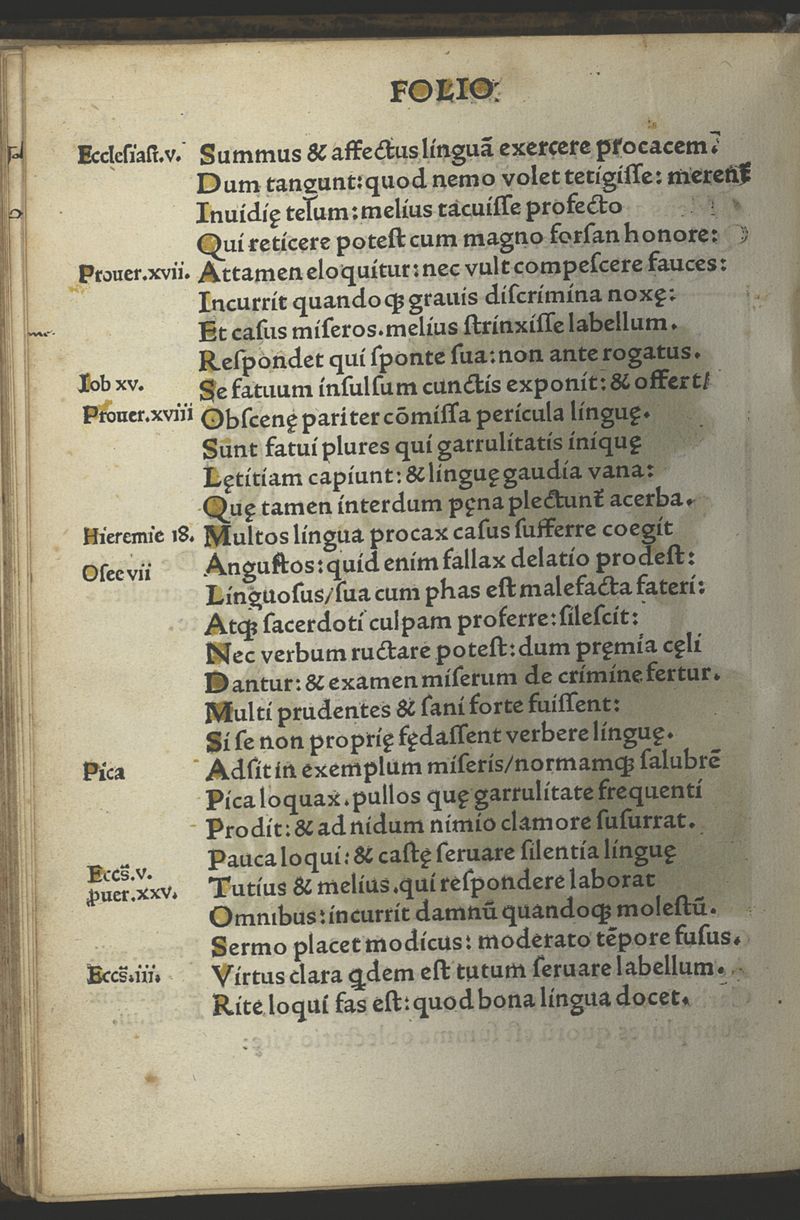 FOLIO.
Eccleſiaſt.v. Summus & affectus linguã exercere procacem:
Dum tangunt: quod nemo volet tetigiſſe: merent᷑
Inuidię telum: melius tacuiſſe profecto
Qui reticere poteſt cum magno forſan honore:
Prouer.xvii. Attamen eloquitur: nec vult compeſcere fauces:
Incurrit quandoqꝫ grauis diſcrimina noxę:
Et caſus miſeros. melius ſtrinxiſſe labellum.
Reſpondet qui ſponte ſua: non ante rogatus.
Iob xv. Se fatuum inſulſum cunctis exponit: & offert/
Prouer.xviii Obſcenę pariter cõmiſſa pericula linguę.
Sunt fatui plures qui garrulitatis iniquę
Lętitiam capiunt: & linguę gaudia vana:
Quę tamen interdum pęna plectunt᷑ acerba.
Hieremie 18. Multos lingua procax caſus ſufferre coegit
Oſee vii Anguſtos: quid enim fallax delatio prodeſt:
Linguoſus/ ſua cum phas eſt malefacta fateri:
Atqꝫ ſacerdoti culpam proferre: ſileſcit:
Nec verbum ructare poteſt: dum pręmia cęli
Dantur: & examen miſerum de crimine fertur.
Multi prudentes & ſani forte fuiſſent:
Si ſe non proprię fędaſſent verbere linguę.
Pica Adſit in exemplum miſeris/ normamqꝫ ſalubrẽ
Pica loquax. pullos quę garrulitate frequenti
Prodit: & ad nidum nimio clamore ſuſurrat.
Pauca loqui: & caſtę ſeruare ſilentia linguę
Eccs̃.v. Tutius & melius. qui reſpondere laborat
ꝓuer.xxv. Omnibus: incurrit damnũ quandoqꝫ moleſtũ.
Sermo placet modicus: moderato tẽpore fuſus.
Eccs̃.iii. Virtus clara qͥdem eſt tutum ſeruare labellum.
Rite loqui fas eſt: quod bona lingua docet.